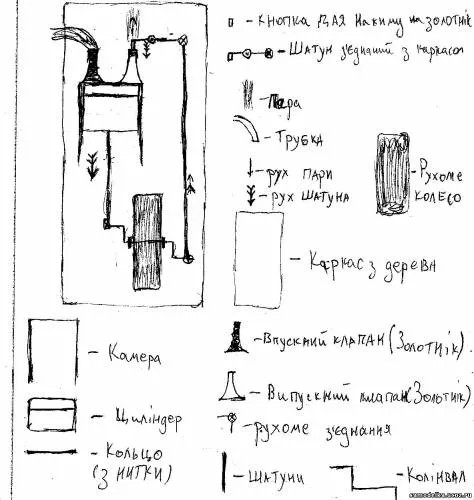 - КНОПКА ДЛЯ НАЖИМУ НА ЗОЛОТНІК
- ШАТУН З'ЄДНАНИЙ З КАРКАСОМ
- Пара
- ТРУБКА
- РУХ ПАРИ
- РУХ ШАТУНА
- Рухоме
колесо
- Каркас з дерева
- Камера
- Впускний клапан (Золотнік).
- Циліндер
- Випускний клапан (Золотнік)
- рухоме з'єднання
- Кольцо
(З НИТКИ)
- ШАТУНИ
- КОЛІНВАЛ
samodelka.ucoz.ru